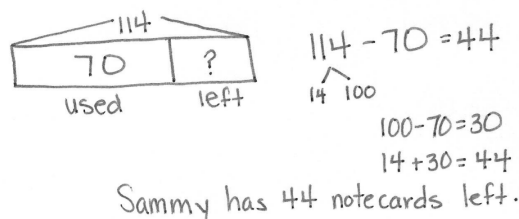 114
70 ?
used left
114 - 70 = 44
14 100
100-70=30
14+30=44
Sammy has 44 notecards left.